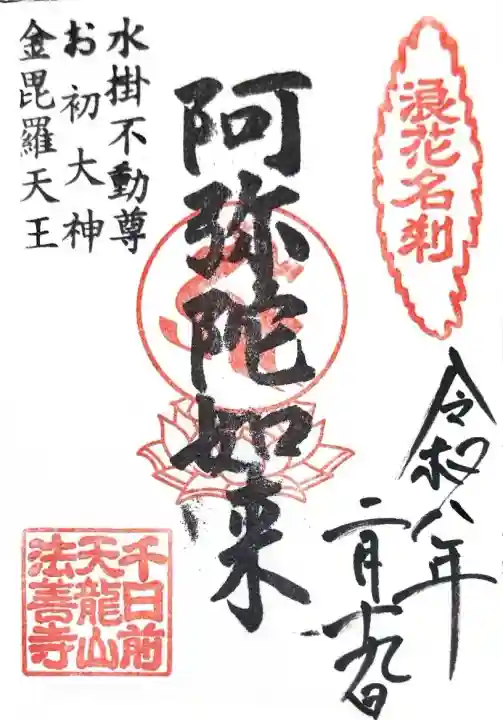 浪花名刹
令和八年
二月十九日
阿弥陀如来
水掛不動尊
お初大神
金毘羅天王
千日前
天龍山
法善寺